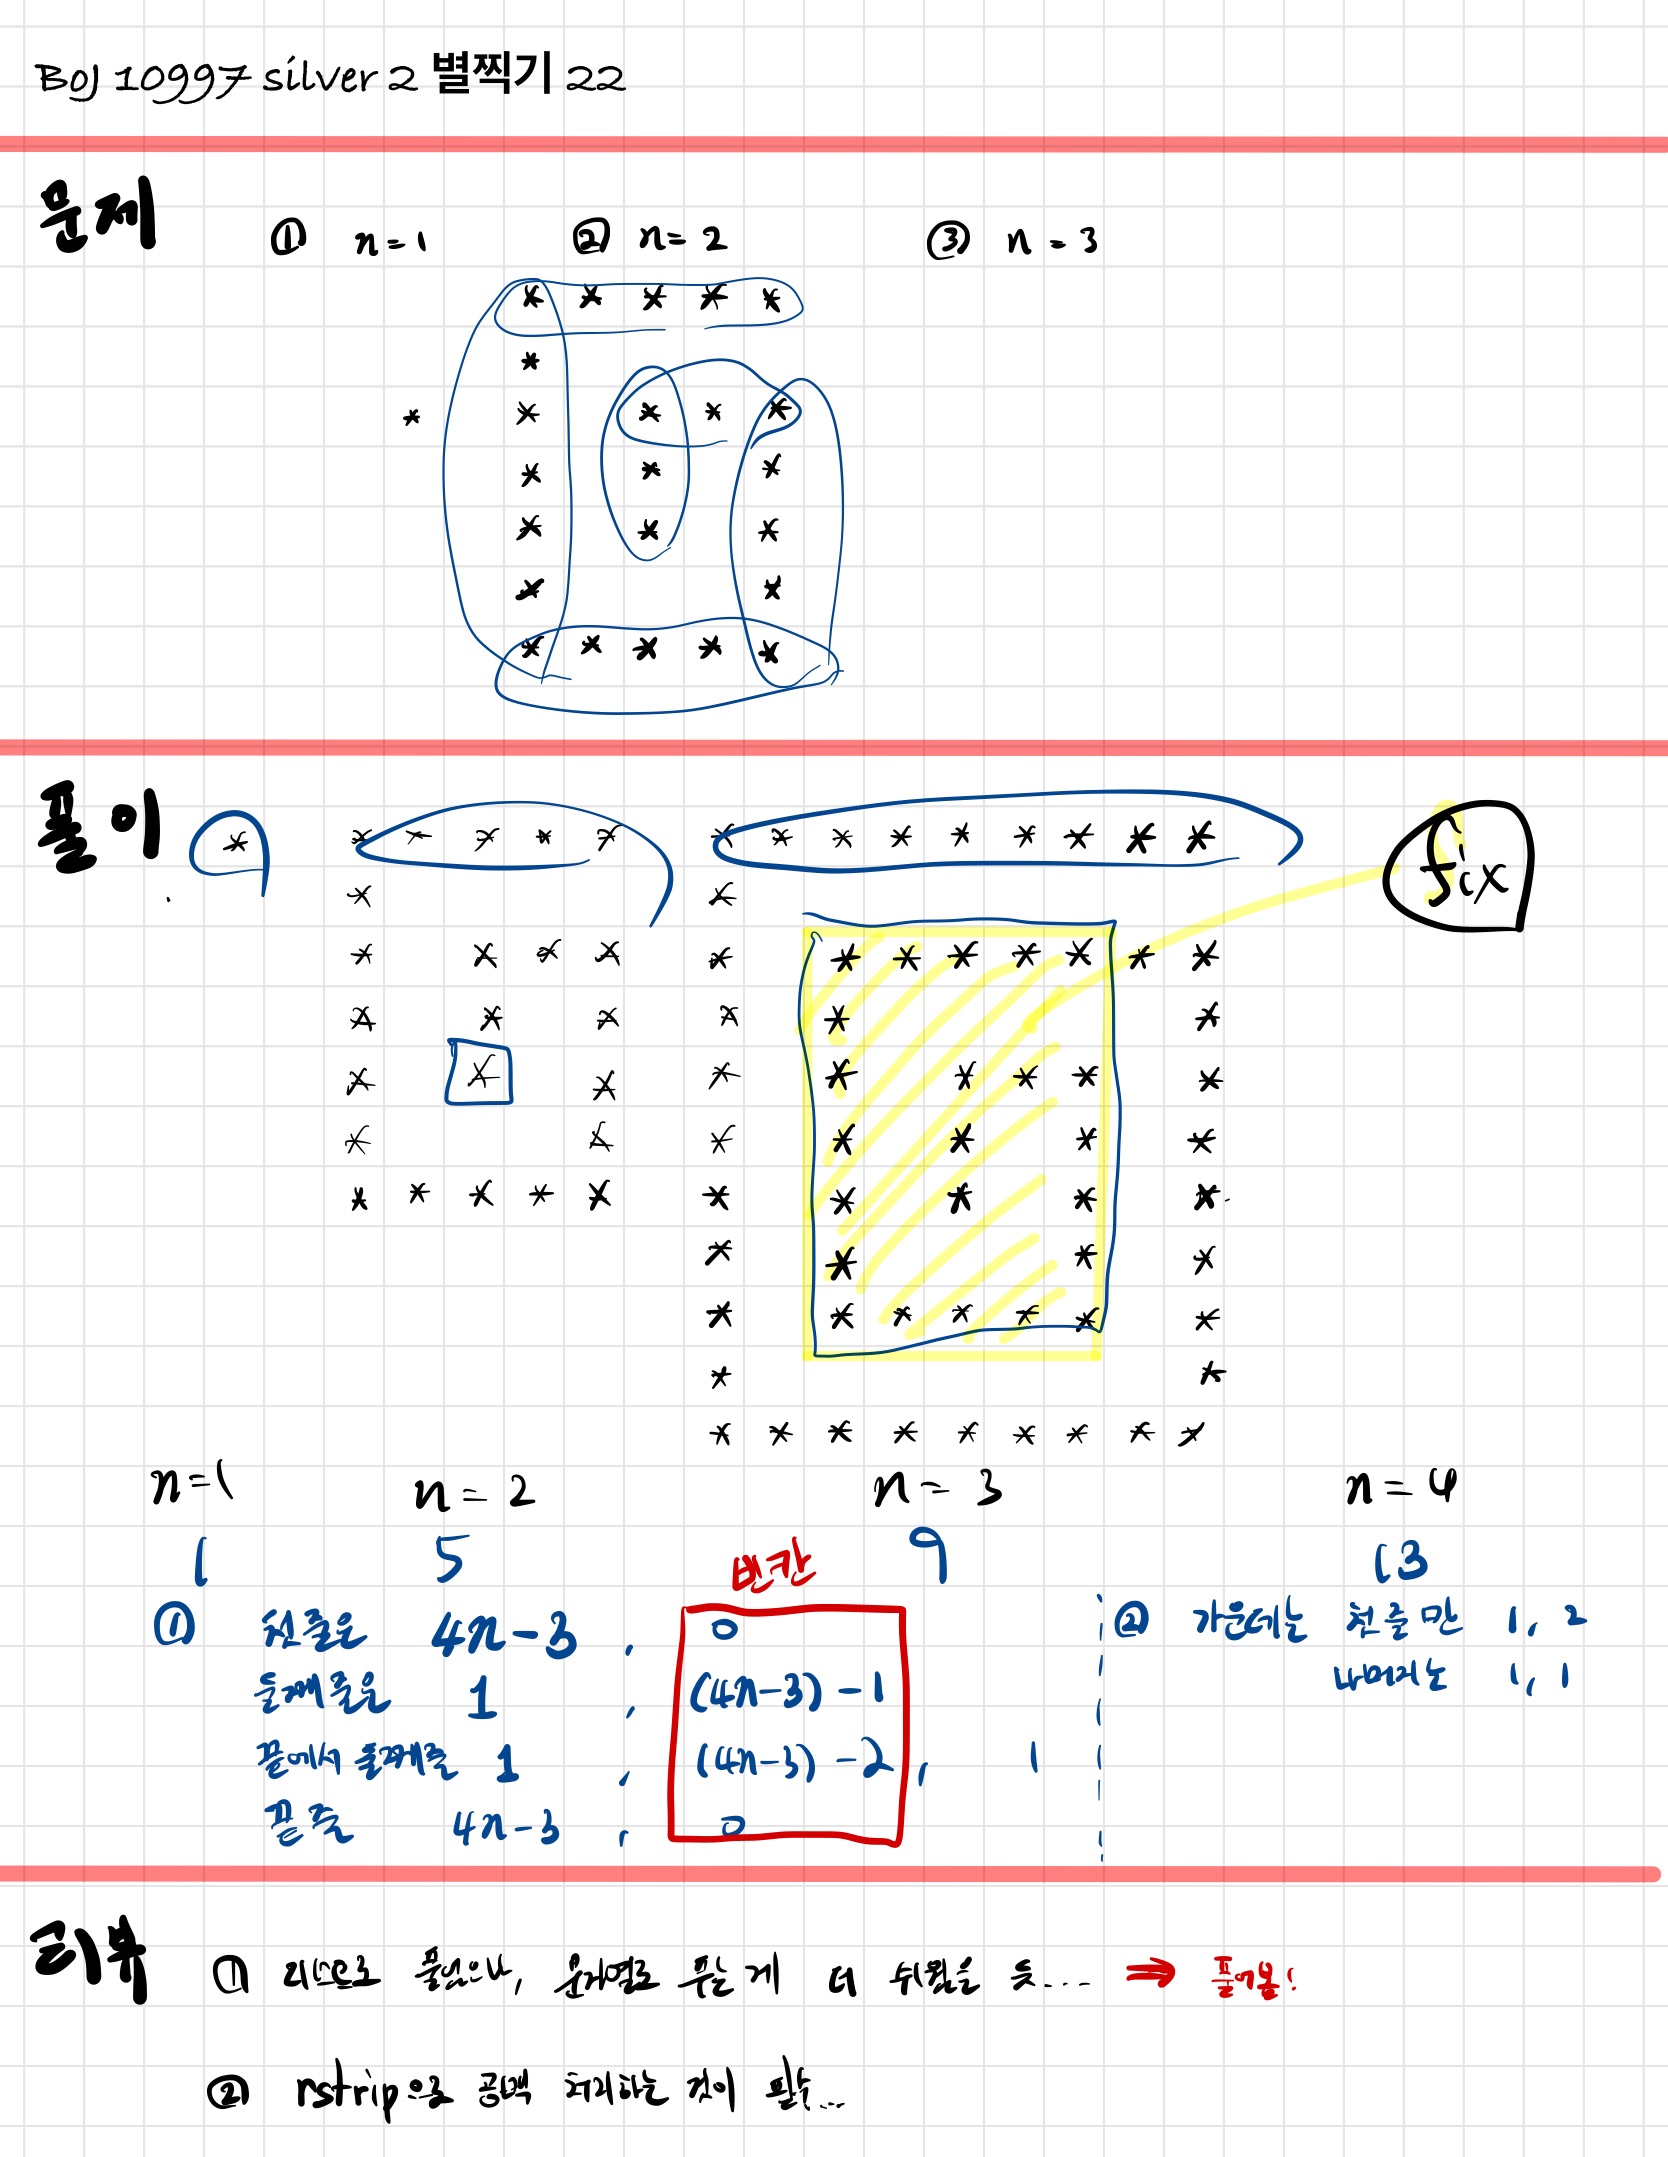 BOJ 10997 silver 2 별찍기 22
문제
① n=1 ② n=2 ③ n=3
* * * * *
*
* * * * *
* * *
* * *
* *
* * * * *
풀이
fix
* * * * * * * * * * * * * * *
* *
* * * * * * * * * * * *
* * * * * *
* * * * * * * * *
* * * * * * *
* * * * * * * * * *
* * * *
* * * * * * *
* *
* * * * * * * * *
n=1 n=2 n=3 n=4
1 5 9 13
빈칸
① 첫 줄은 4n-3 , 0
둘째 줄은 1 , (4n-3) -1
끝에서 둘째줄 1 , (4n-3) -2 , 1
끝줄 4n-3 , 0
② 가운데는 첫 줄만 1, 2
나머지는 1, 1
리뷰
① 리스트로 풀었으나, 문자열로 푸는 게 더 쉬웠을 듯... ⇒ 풀어봄!
② rstrip으로 공백 처리하는 것이 필수...